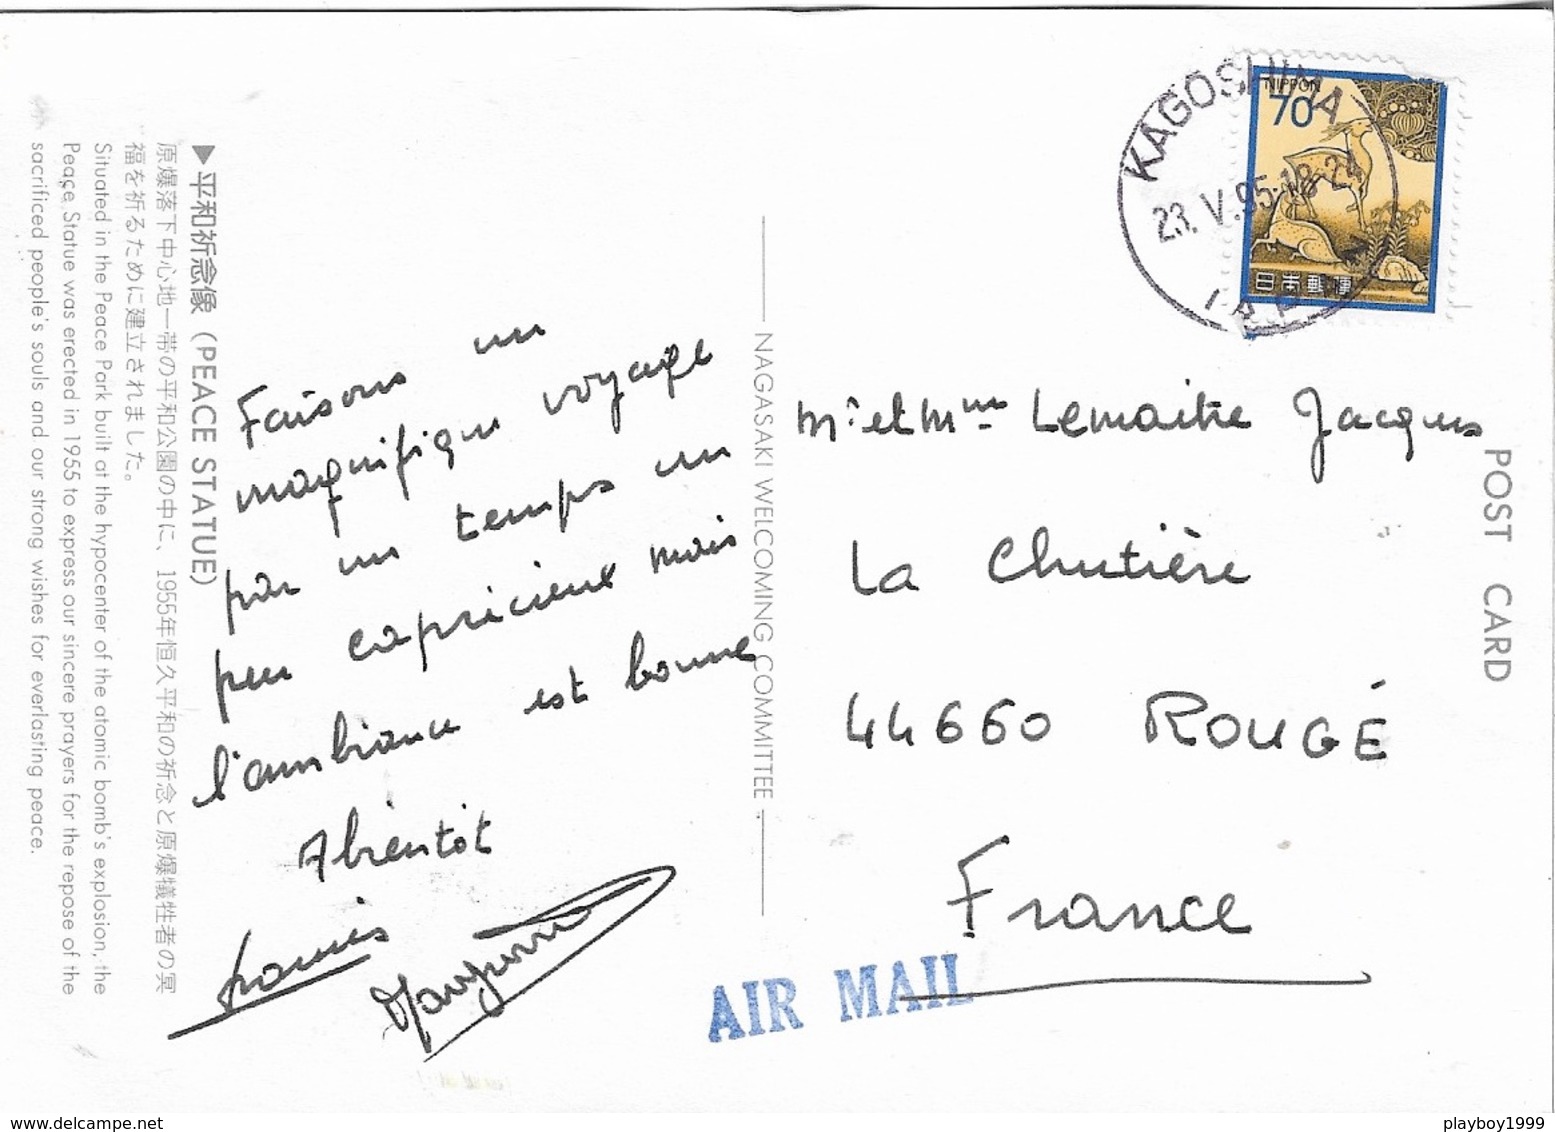 ▶平和祈念像 (PEACE STATUE)
原爆落下中心地一帯の平和公園の中に、1955年恒久平和の祈念と原爆犠牲者の冥
福を祈るために建立されました。
Situated in the Peace Park built at the hypocenter of the atomic bomb's explosion, the
Peace Statue was erected in 1955 to express our sincere prayers for the repose of the
sacrificed people's souls and our strong wishes for everlasting peace.
Faisons un
magnifique voyage
par un temps un
peu capricieux mais
l'ambiance est bonne
Abientôt
NAGASAKI WELCOMING COMMITTEE
KAGOSHIMA
23. V. 95. 18-24
JAPAN
NIPPON
70
日本郵便
Mr et Mme Lemaitre Jacques
La Chutière
44660 ROUGÉ
France
AIR MAIL
POST CARD
www.delcampe.net
playboy1999